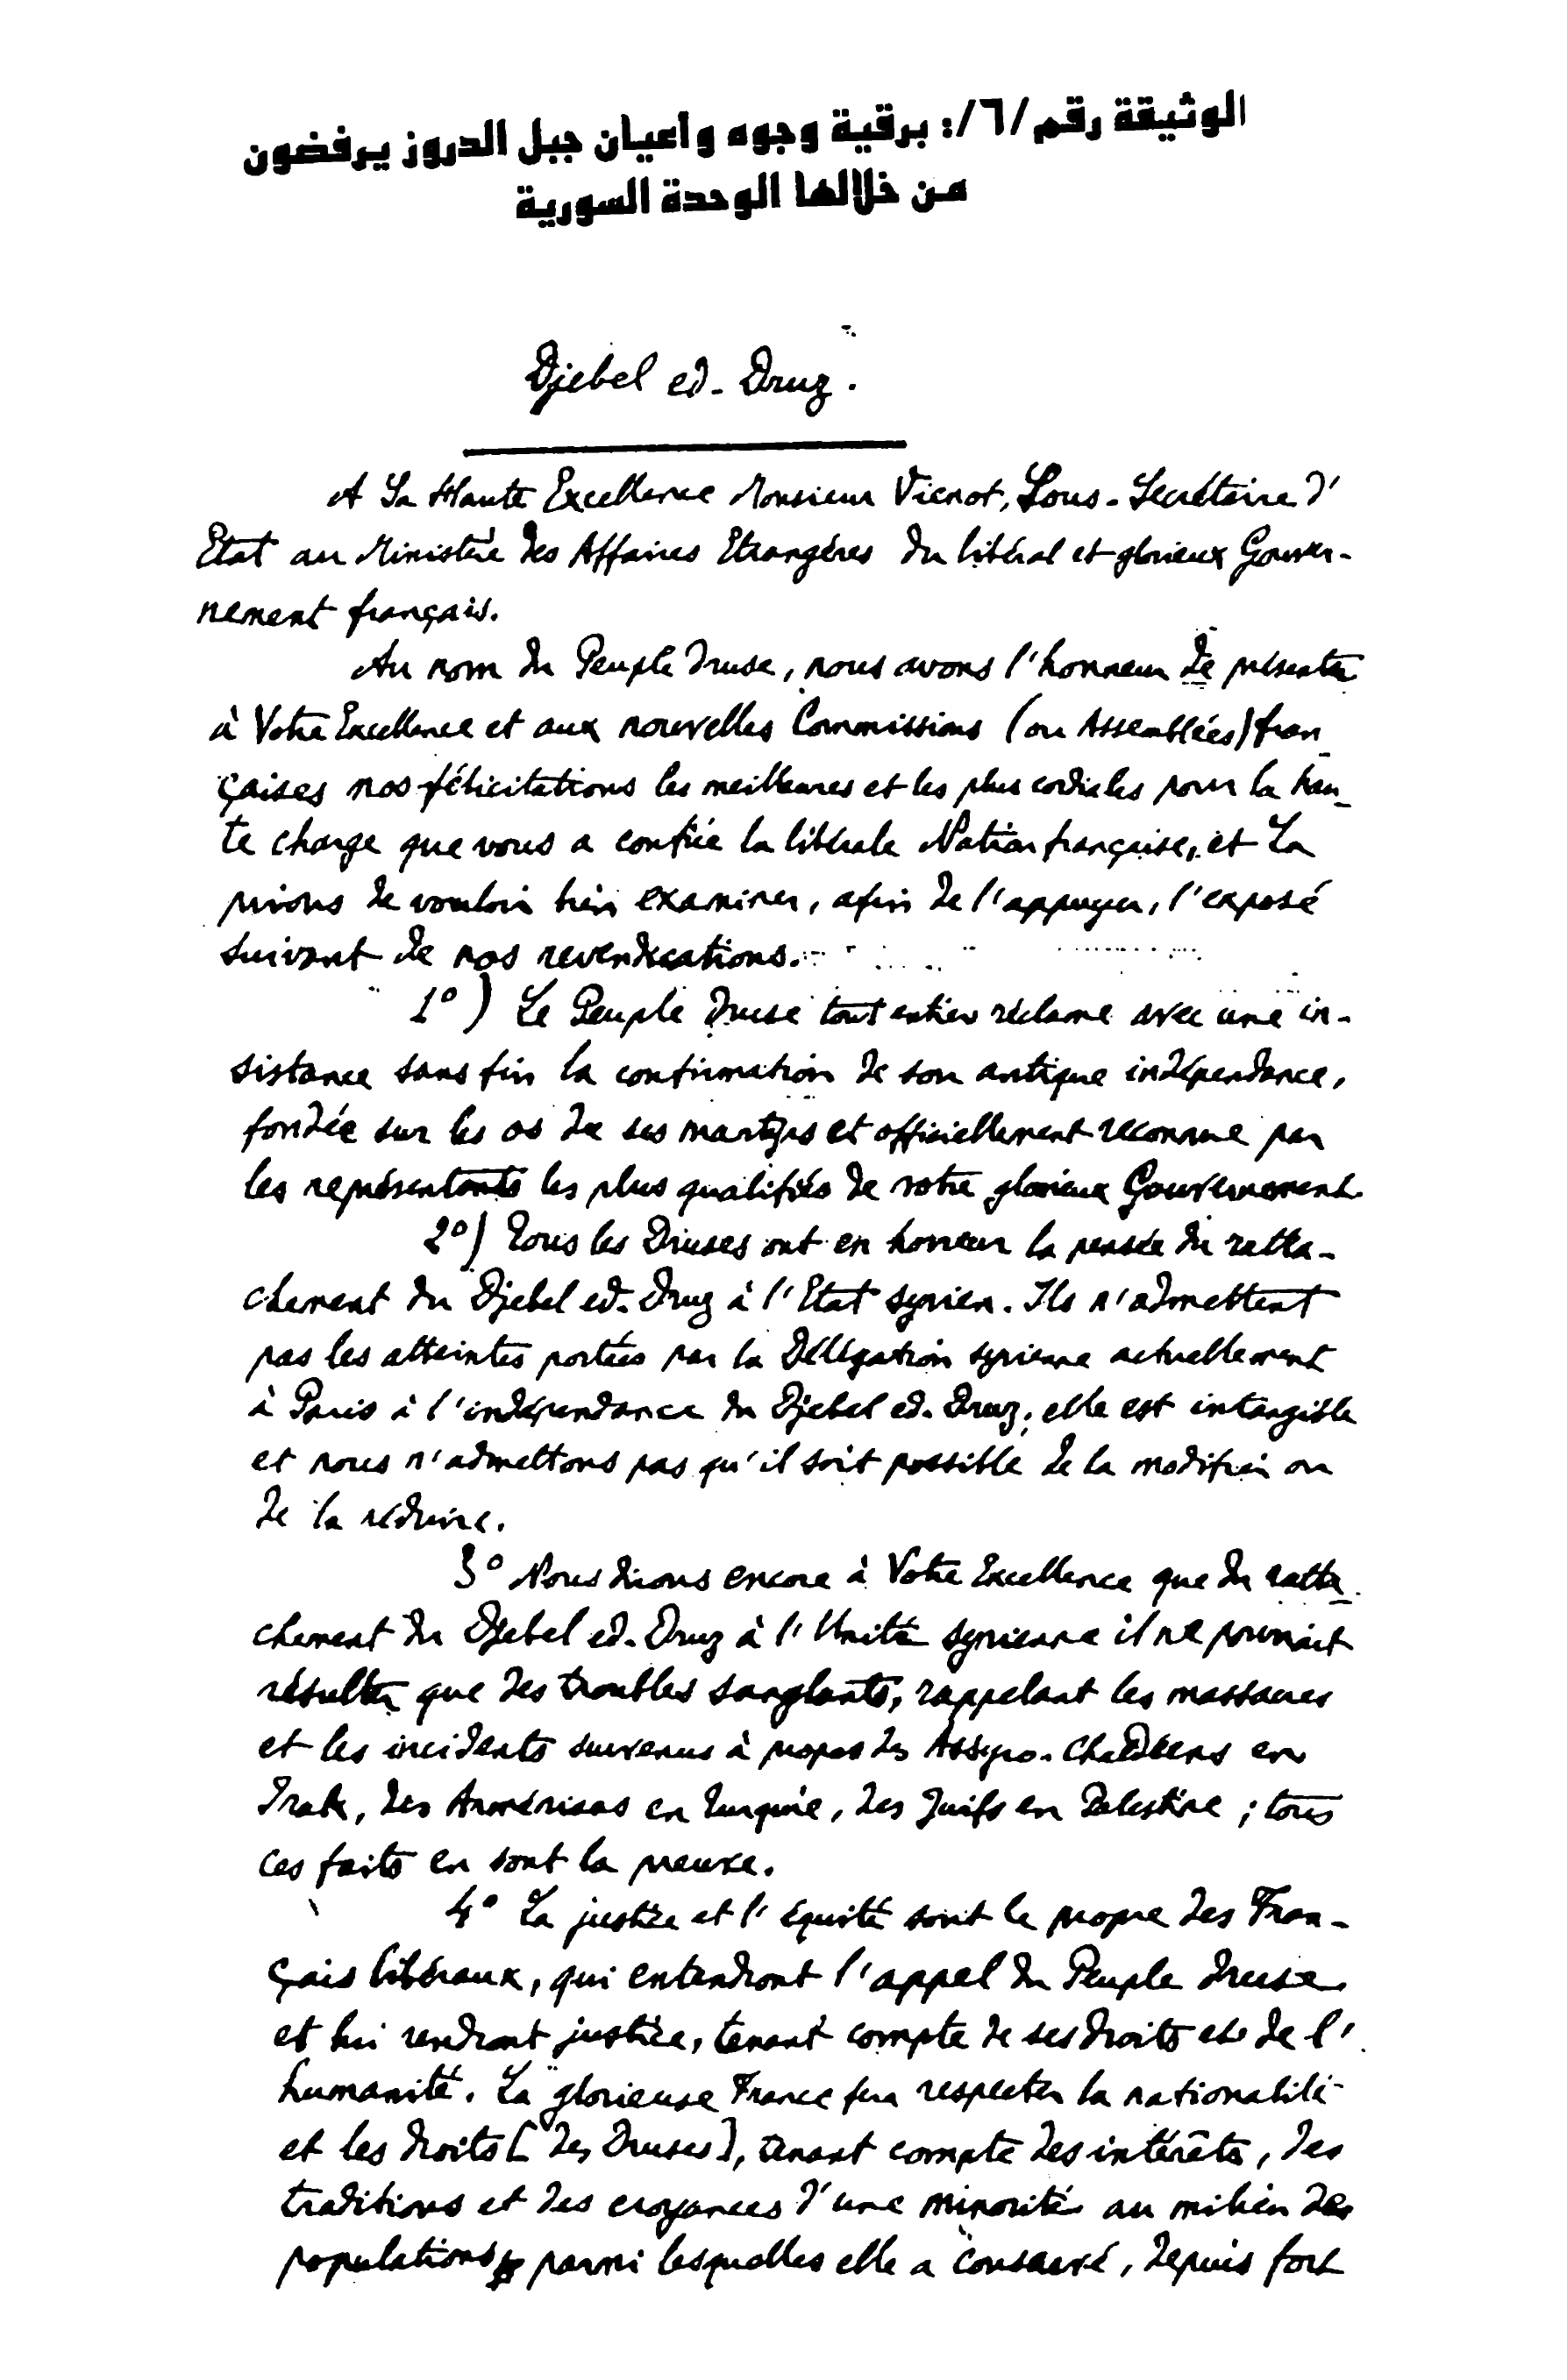 الوثيقة رقم /٦/: برقية وجوه وأعيان جبل الدروز يرفضون
من خلالها الوحدة السورية
Djebel ed-Druz.
A Sa Haute Excellence Monsieur Vienot, Sous-Secrétaire d'
Etat au Ministère des Affaires Etrangères du libéral et glorieux Gouver-
nement français.
Au nom du Peuple druse, nous avons l'honneur de présenter
à Votre Excellence et aux nouvelles Commissions (ou Assemblées) fran_
çaises nos félicitations les meilleures et les plus cordiales pour la hau_
te charge que vous a confiée la libérale Nation française, et La
prions de vouloir bien examiner, afin de l'appuyer, l'exposé
suivant de nos revendications.
1°) Le Peuple druse tout entier réclame avec une in-
sistance sans fin la confirmation de son antique indépendance,
fondée sur les os de ses martyrs et officiellement reconnue par
les représentants les plus qualifiés de votre glorieux Gouvernement.
2°) Tous les Druses ont en horreur la pensée du ratta-
chement du Djebel ed-Druz à l'Etat syrien. Ils n'admettent
pas les atteintes portées par la Délégation syrienne actuellement
à Paris à l'indépendance du Djebel ed-Druz; elle est intangible
et nous n'admettons pas qu'il soit possible de la modifier ou
de la réduire.
3° Nous dirons encore à Votre Excellence que du ratta_
chement du Djebel ed-Druz à l'Unité syrienne il ne pourrait
résulter que des troubles sanglants, rappelant les massacres
et les incidents survenus à propos des Assyro-Chaldéens en
Irak, des Arméniens en Turquie, des Juifs en Palestine ; tous
ces faits en sont la preuve.
4° La justice et l'équité sont le propre des Fran-
çais libéraux, qui entendront l'appel du Peuple druse
et lui rendront justice, tenant compte de ses droits et de l'
humanité. La glorieuse France fera respecter la nationalité
et les droits [des Druses], tenant compte des intérêts, des
traditions et des croyances d'une minorité au milieu des
populations parmi lesquelles elle a conservé, depuis fort